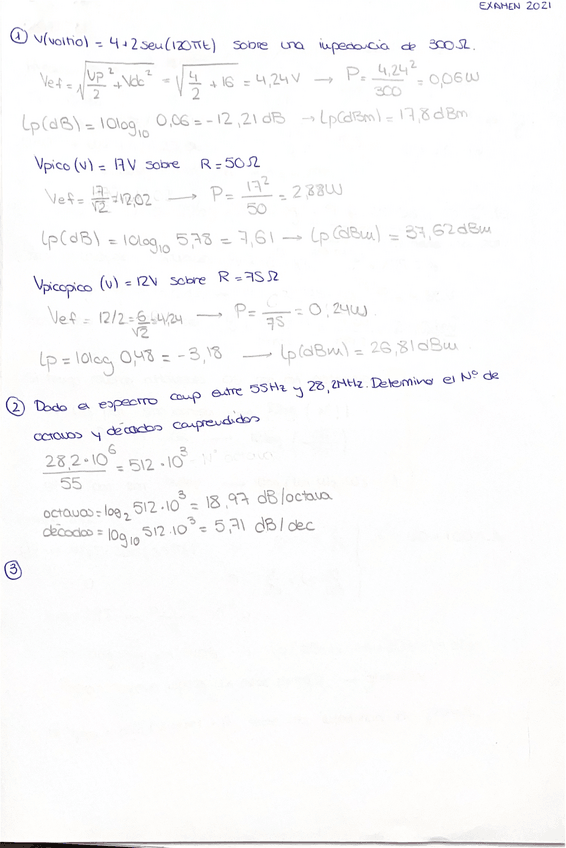 EXAMEN 2021
① V(voltio) = 4+2seu(120πt) sobre una impedancia de 300Ω.
Vef = √(Vp²/2 + Vdc²) = √(4/2 + 16) = 4,24V → P = 4,24²/300 = 0,06W
Lp(dB) = 10log₁₀ 0,06 = -12,21 dB → Lp(dBm) = 17,8 dBm
Vpico (V) = 17V sobre R = 50Ω
Vef = 17/√2 = 12,02 → P = 17²/50 = 2,88W
Lp(dB) = 10log₁₀ 5,78 = 7,61 → Lp(dBm) = 37,62 dBm
Vpicopico (v) = 12V sobre R = 75Ω
Vef = 12/2 = 6/√2 = 4,24 → P = /75 = 0,24W.
Lp = 10log 0,48 = -3,18 → Lp(dBm) = 26,81 dBm
② Dado el espectro comp entre 55Hz y 28,2MHz. Determina el Nº de
octavas y décadas comprendidas
28,2·10⁶/55 = 512·10³
octavas = log₂ 512·10³ = 18,97 dB/octava
décadas = log₁₀ 512·10³ = 5,71 dB/dec
③